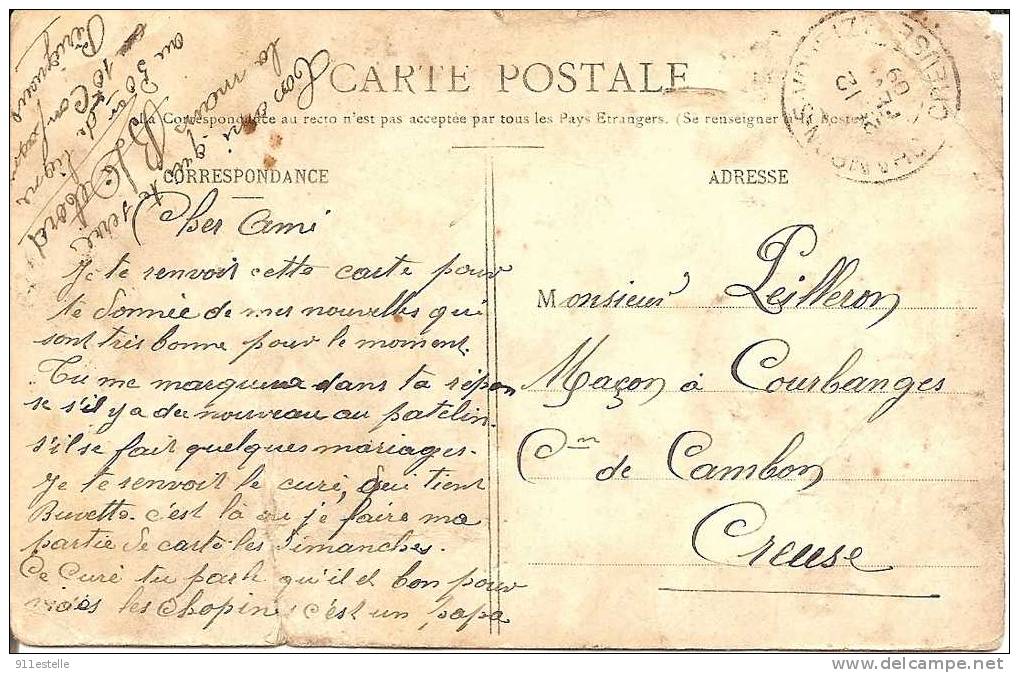 CARTE POSTALE
La Correspondance au recto n'est pas acceptée par tous les Pays Etrangers. (Se renseigner à la Poste)
CORRESPONDANCE
Cher Ami
Je te renvoit cette carte pour
te donnée de mes nouvelles qui
sont très bonne pour le moment.
Tu me marquera dans ta répon
se s'il y a du nouveau au patelin.
s'il se fait quelques mariages.
Je te renvoit le curé, qui tient
Buvette. c'est là ou je faire ma
partie de carte les dimanches.
Ce Curé tu parle qu'il et bon pour
vides les Chopin, c'est un papa
Ton ami qui te serre
la main
au 50 de ligne
10 Com
Périgueux
ADRESSE
Monsieur Peilleron
Maçon à Courbanges
Cne de Cambon
Creuse
CREUSE
911estelle
www.delcampe.net